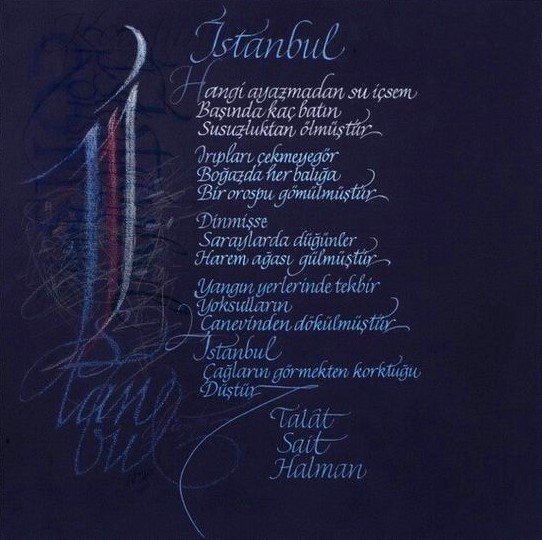 İstanbul
Hangi ayazmadan su içsem
Başında kaç batın
Susuzluktan ölmüştür
Irıpları çekmeyegör
Boğazda her balığa
Bir orospu gömülmüştür
Dinmişse
Saraylarda düğünler
Harem ağası gülmüştür
Yangın yerlerinde tekbir
Yoksulların
Canevinden dökülmüştür
İstanbul
Çağların görmekten korktuğu
Düştür
Talât
Sait
Halman
İs
tan
bul